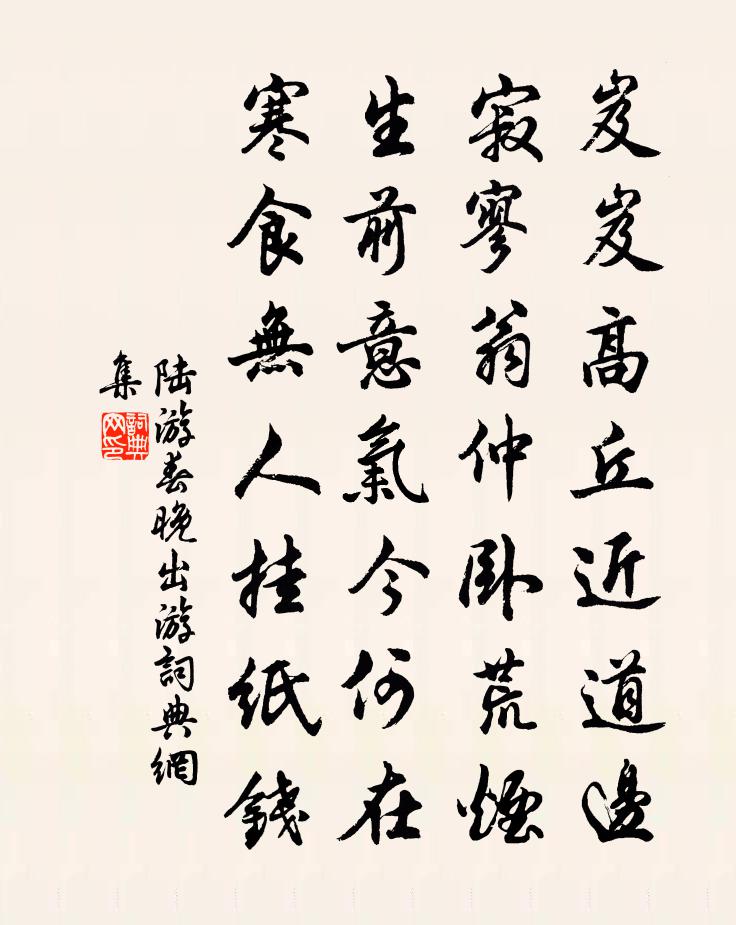 岌岌高丘近道邊
寂寥翁仲卧荒煙
生前意氣今何在
寒食無人挂紙錢
陸游春晚出游詞典網
集
詞典
网印